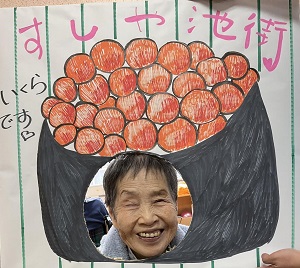 すしや池街
いくら
です